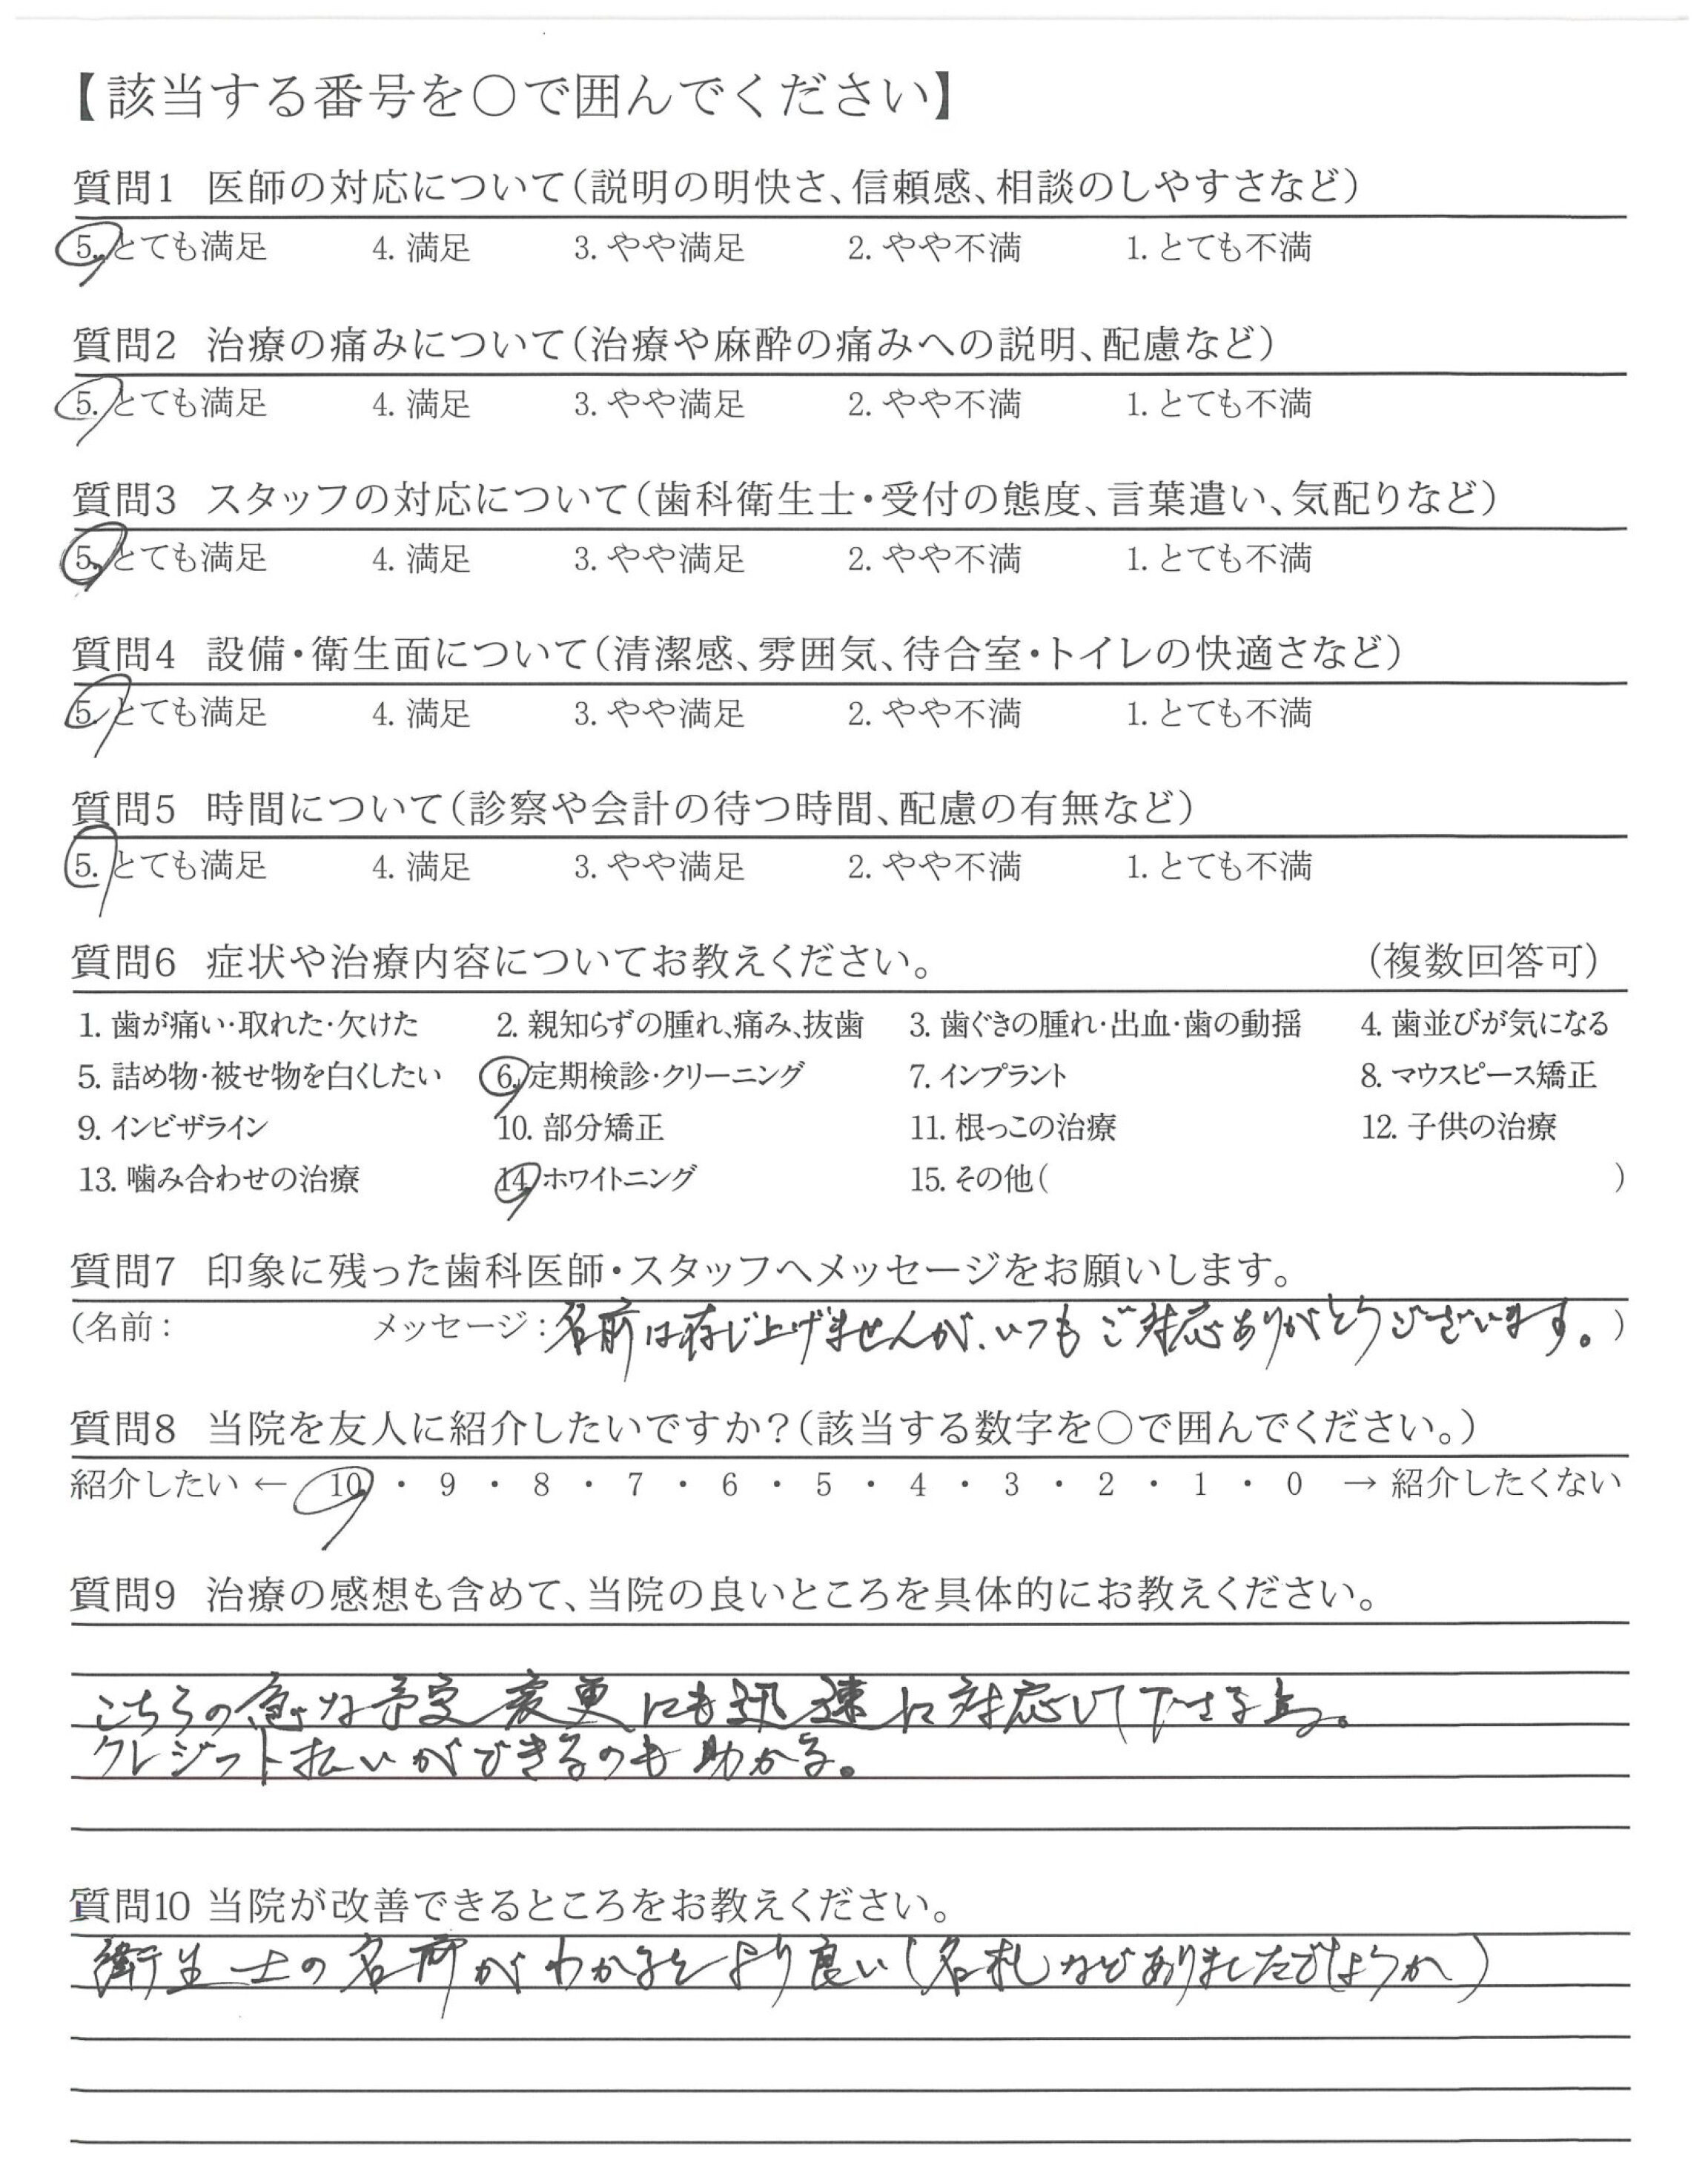 【該当する番号を〇で囲んでください】
質問1 医師の対応について（説明の明快さ、信頼感、相談のしやすさなど）
5. とても満足 4. 満足 3. やや満足 2. やや不満 1. とても不満
質問2 治療の痛みについて（治療や麻酔の痛みへの説明、配慮など）
5. とても満足 4. 満足 3. やや満足 2. やや不満 1. とても不満
質問3 スタッフの対応について（歯科衛生士・受付の態度、言葉遣い、気配りなど）
5. とても満足 4. 満足 3. やや満足 2. やや不満 1. とても不満
質問4 設備・衛生面について（清潔感、雰囲気、待合室・トイレの快適さなど）
5. とても満足 4. 満足 3. やや満足 2. やや不満 1. とても不満
質問5 時間について（診察や会計の待つ時間、配慮の有無など）
5. とても満足 4. 満足 3. やや満足 2. やや不満 1. とても不満
質問6 症状や治療内容についてお教えください。 （複数回答可）
1. 歯が痛い・取れた・欠けた 2. 親知らずの腫れ、痛み、抜歯 3. 歯ぐきの腫れ・出血・歯の動揺 4. 歯並びが気になる
5. 詰め物・被せ物を白くしたい 6. 定期検診・クリーニング 7. インプラント 8. マウスピース矯正
9. インビザライン 10. 部分矯正 11. 根っこの治療 12. 子供の治療
13. 噛み合わせの治療 14. ホワイトニング 15. その他（ ）
質問7 印象に残った歯科医師・スタッフへメッセージをお願いします。
（名前： メッセージ：名前は存じ上げませんが、いつもご対応ありがとうございます。）
質問8 当院を友人に紹介したいですか？（該当する数字を〇で囲んでください。）
紹介したい ← 10 ・ 9 ・ 8 ・ 7 ・ 6 ・ 5 ・ 4 ・ 3 ・ 2 ・ 1 ・ 0 → 紹介したくない
質問9 治療の感想も含めて、当院の良いところを具体的にお教えください。
こちらの急な予定変更にも迅速に対応して下さる点。
クレジット払いができるのも助かる。
質問10 当院が改善できるところをお教えください。
衛生士の名前がわかるとより良い（名札などありましたでしょうか）